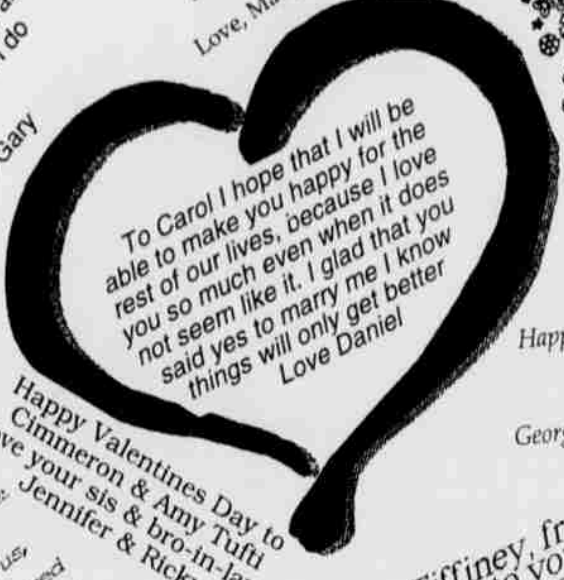 do
Love,
Gary
To Carol I hope that I will be
able to make you happy for the
rest of our lives, because I love
you so much even when it does
not seem like it. I glad that you
said yes to marry me I know
things will only get better
Love Daniel
Happy Valentines Day to
Cimmeron & Amy Tufti
your sis & bro-in-la
Jennifer & Rick
us,